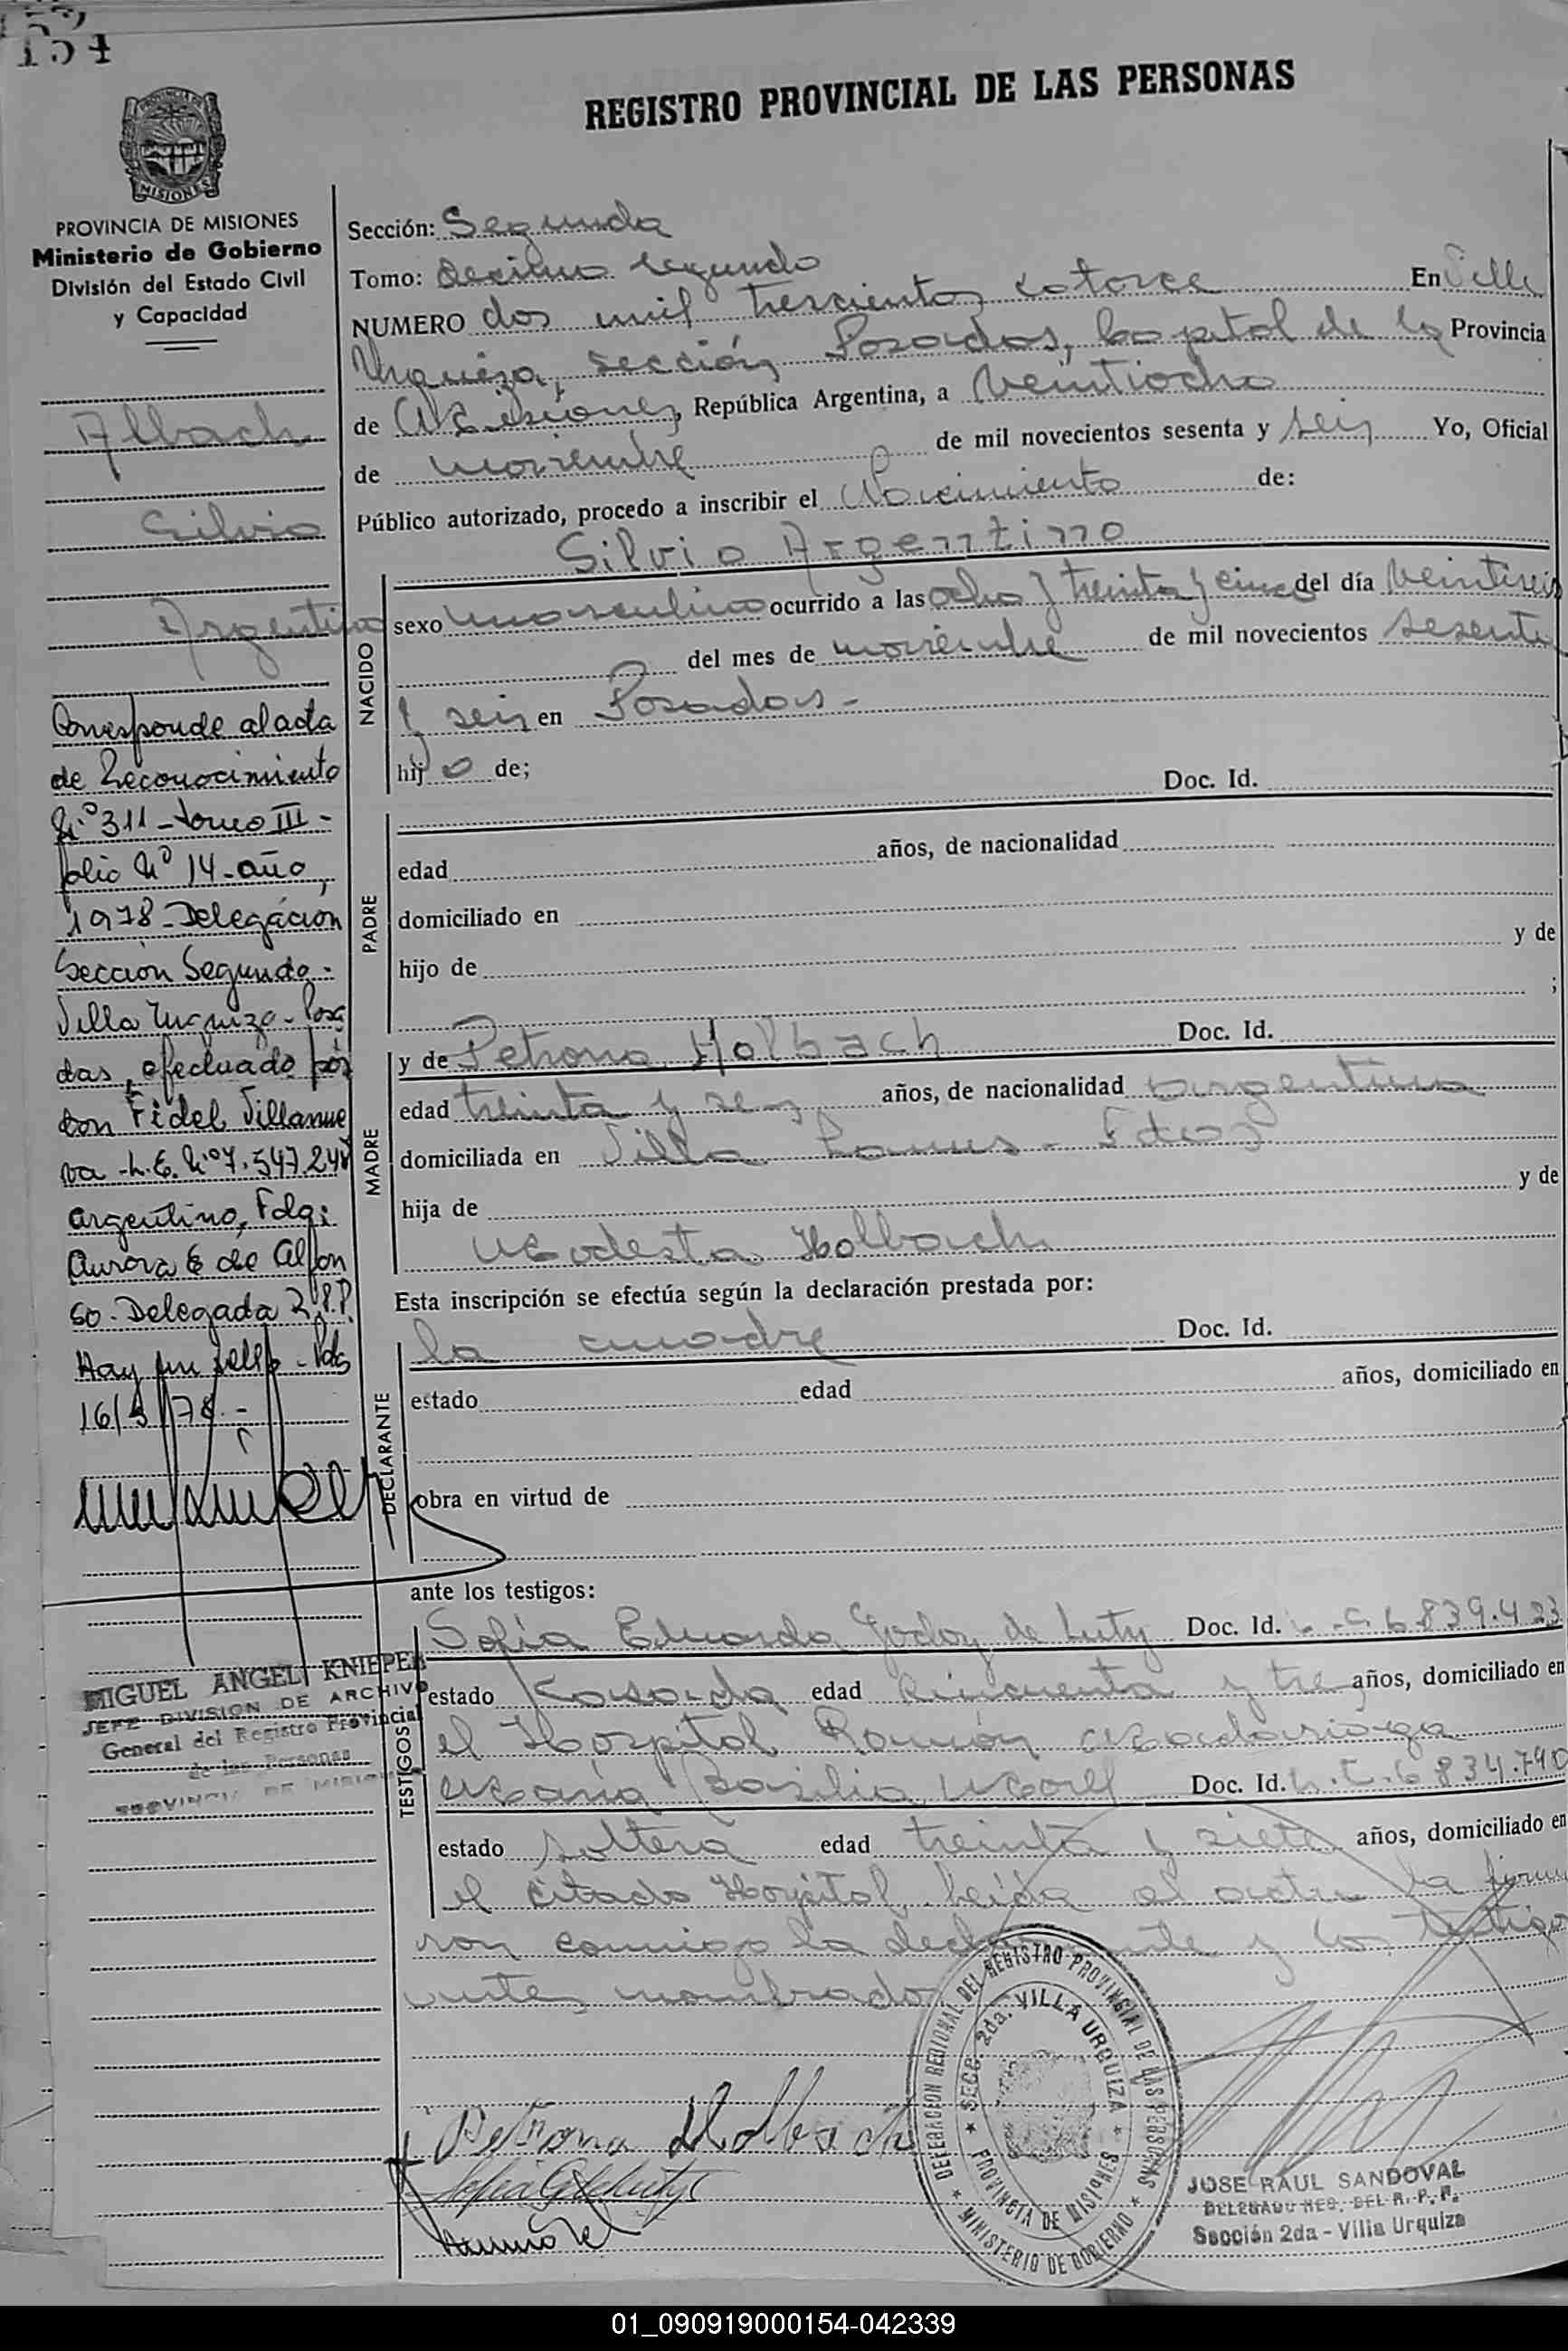 154
REGISTRO PROVINCIAL DE LAS PERSONAS
MISIONES
PROVINCIA DE MISIONES
Ministerio de Gobierno
División del Estado Civil
y Capacidad
Albach
Silvio
Argentino
Corresponde al acta
de Reconocimiento
Nº 311 - tomo III -
folio Nº 14 - año
1978 - Delegación
Sección Segunda -
Villa Urquiza - Posa
das, efectuado por
don Fidel Villanue
va - L.E. Nº 7.547.248
argentino, Fdo:
Aurora E de Alfon
so - Delegada R.P.P.
Hay un sello - Pdas
16/5/78.-
MIGUEL ANGEL KNIEPER
JEFE DIVISION DE ARCHIVO
General del Registro Provincial
de las Personas
PROVINCIA DE MISIONES
Sección: Segunda
Tomo: decimo segundo
NUMERO dos mil trescientos catorce En Villa
Urquiza, sección Posadas, Capital de la Provincia
de Misiones, República Argentina, a veintiocho
de noviembre de mil novecientos sesenta y seis Yo, Oficial
Público autorizado, procedo a inscribir el Nacimiento de:
Silvio Argentino
NACIDO
sexo masculino ocurrido a las ocho y treinta y cinco del día veintiseis
del mes de noviembre de mil novecientos sesenta
y seis en Posadas -
hijo de;
Doc. Id.
PADRE
edad años, de nacionalidad
domiciliado en
hijo de y de
;
MADRE
y de Petrona Holbach Doc. Id.
edad treinta y seis años, de nacionalidad argentina
domiciliada en Villa Lanus -
hija de y de
Modesta Holbach
Esta inscripción se efectúa según la declaración prestada por:
DECLARANTE
la madre Doc. Id.
estado edad años, domiciliado en
obra en virtud de
ante los testigos:
TESTIGOS
Sofía Eduarda Godoy de Luty Doc. Id. L.C. 6.839.423
estado Casada edad cincuenta y tres años, domiciliado en
el Hospital Ramón Madariaga
María Basilia Doc. Id. L.C. 6.834.790
estado soltera edad treinta y siete años, domiciliado en
el citado Hospital. Leída el acta la firma
ron conmigo la declarante y los testigos
antes nombrados
Petrona Holbach
DELEGACION REGIONAL DEL REGISTRO PROVINCIAL DE LAS PERSONAS
SECC. 2da. VILLA URQUIZA
PROVINCIA DE MISIONES
MINISTERIO DE GOBIERNO
JOSE RAUL SANDOVAL
DELEGADO REG. DEL R. P. P.
Sección 2da - Villa Urquiza
01_090919000154-042339